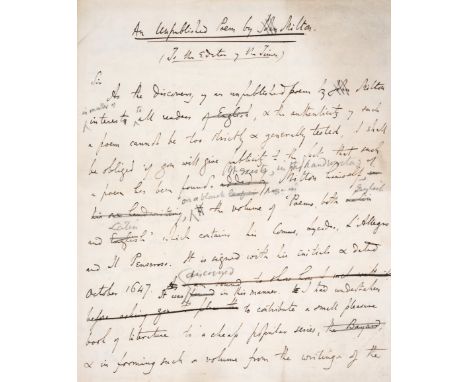 An Unpublished Poem by John Milton.
(To the Editor of the Times)
Sir
As the discovery of an unpublished poem by John Milton
is matter of
interest to all readers of English, & the authenticity of such
a poem cannot be too strictly & generally tested, I shall
be obliged if you will give publicity to the fact that such
It exists, in the handwriting of
a poem has been found, Milton himself,
on a blank page in
the volume of "Poems both English
Latin
and English" which contains his Comus, Lycidas, L'Allegro
and Il Penseroso. It is signed with his initials & dated
discovered
October 1647. It was found in this manner. I had undertaken
before asking you to contribute a small pleasure
book of literature to a cheap popular series, the Bayard,
& in forming such a volume from the writings of the